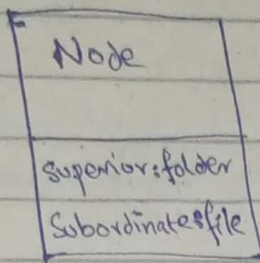 Node
superior:folder
Subordinate:file